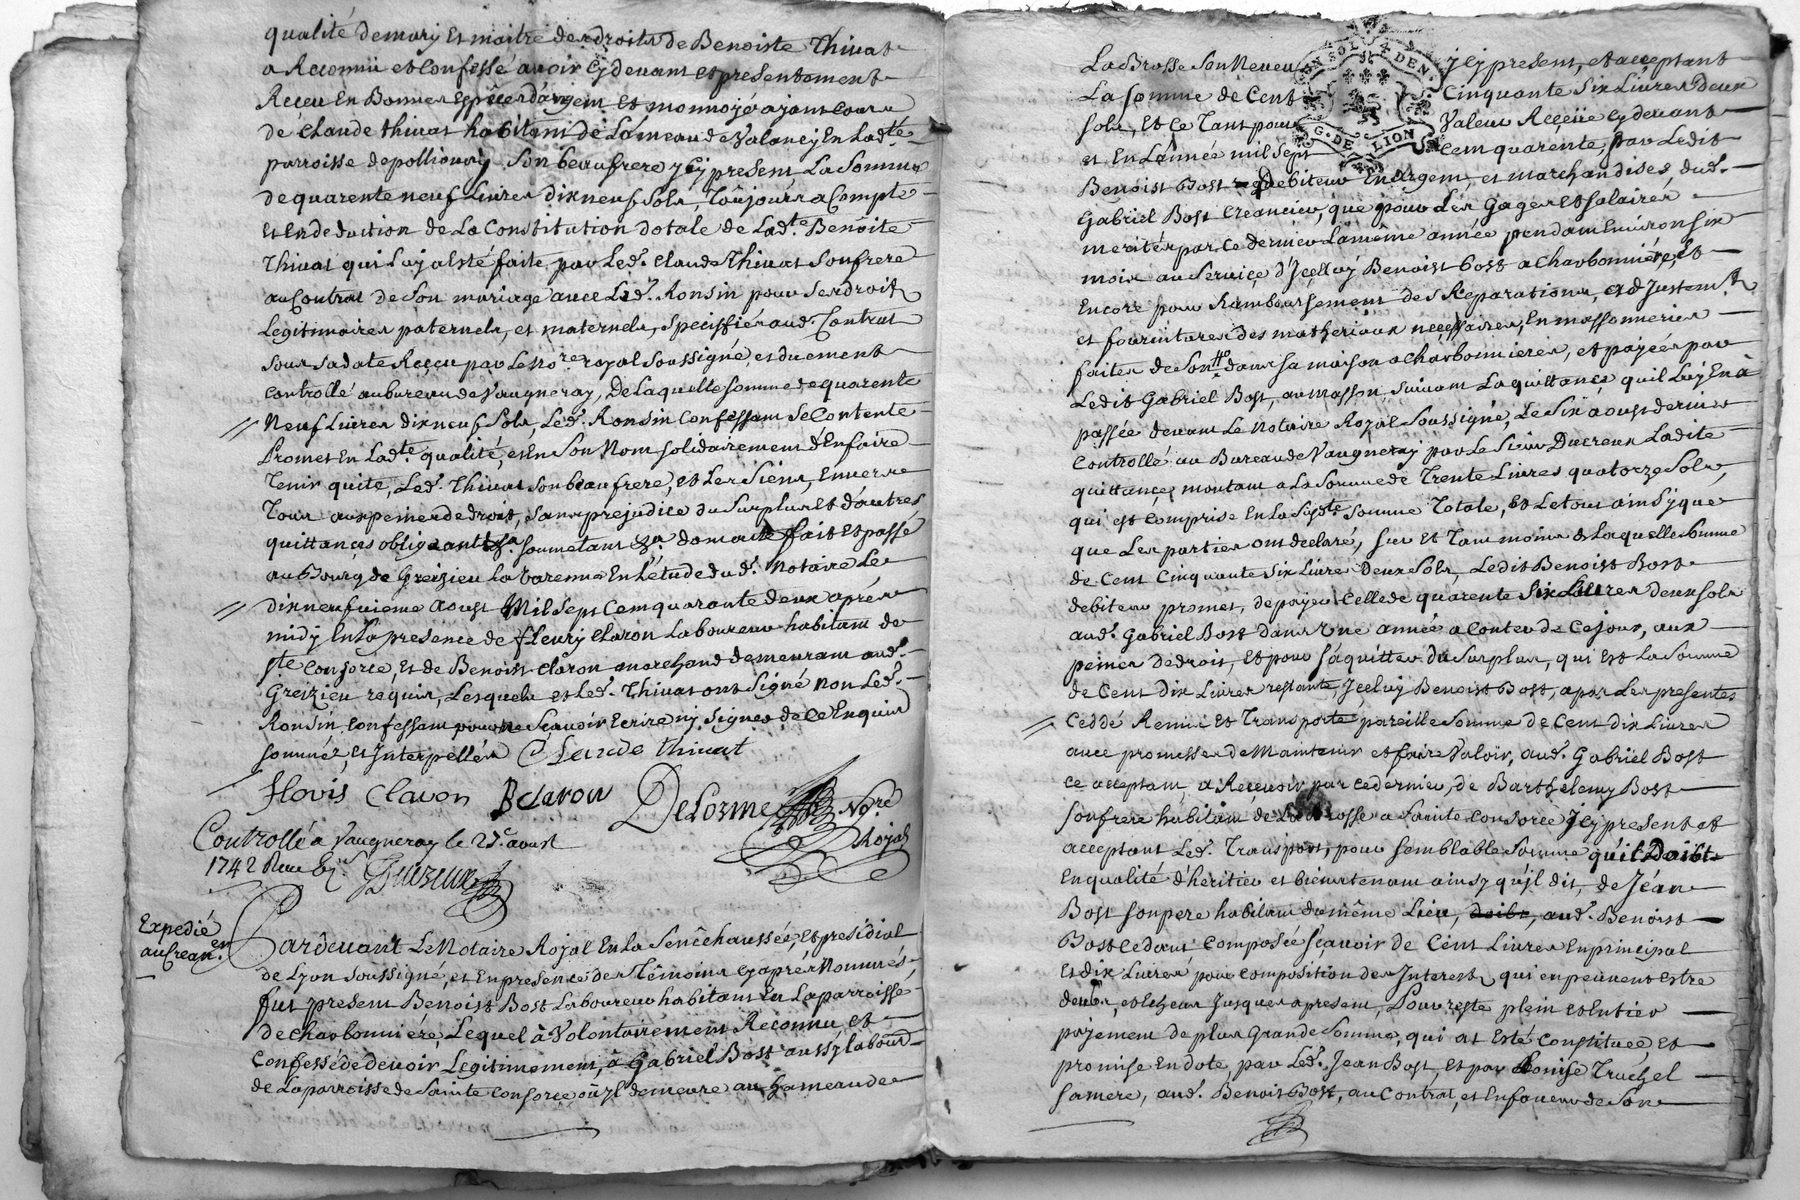 qualité de mary et maitre des droits de Benoiste Thivat
a Reconnu et confessé avoir cy devant et presentement
Receu En Bonnes Espèces d'argent et monnoyé ajant cours
de Claude thivat habitant de Lameau de Valancy En Ladte
parroisse de pollionay son beaufrere y cy present, La Somme
de quarente neuf Livres dix neuf Sols, Toûjours a Compte
et En deduction de La Constitution dotale de Ladte Benoite
Thivat qui Luy a esté faite par Led. Claude Thivat Son frere
au Contrat de Son mariage avec Led. Ronsin pour Ses droits
Legitimaires paternels, et maternels, specifiés aud. Contrat
sous sa date Receu par Le Nore royal Soussigné, et duement
Controllé au bureau de Vaugneray, De Laquelle somme de quarente
Neuf Livres dix neuf Sols, Led. Ronsin Confessant Se Contente
Promet En Ladte qualité, et En Son Nom solidairement d'En faire
Tenir quite, Led. Thivat Son beaufrere, et Les Siens, Envers
Tous aux peines de droit, Sans prejudice du Surplus et d'autres
quittances obligeant &a. soumetant &a. dont acte fait et passé
au Bourg de Greizieu La Varenne En L'etude dud. Notaire Le
dix neufvieme Aoust Mil Sept Cent quarante deux après
midy En La presence de fleury Claron Laboureur habitant de
Ste Consorce, Et de Benoist Claron marchand demeurant aud.
Greizieu requis, Lesquels et Led. Thivat ont Signé non Led.
Ronsin Confessant ne Sçavoir Ecrire ny Signer de ce Enquis
sommés, et Interpellés Claude thivat
flovis Claron B claron DeLorme Nore
Royal
Controllé a Vaugneray le 23e aoust
1742 Reçu
Expedié
au Crean.en
Pardevant Le Notaire Royal En La Senéchaussée, et presidial
de Lyon Soussigné, et En presence des Témoins cy après Nommés,
fut present Benoist Bost Laboureur habitant En La parroisse
de Charbonniére, Lequel a Volontairement Reconnu, et
Confessé de devoir Legitimement, à Gabriel Bost aussy labour
de La parroisse de Sainte Consorce, où yl demeure au hameau de
EN SOL 4 DEN.
G. DE LION
La Brosse Son Neveu ycy present, et acceptant
La somme de Cent Cinquante Six Livres Deux
Sols, et Ce Tant pour Valeur Receüe cy devant
et En L'année mil sept Cent quarente, par Ledit
Benoist Bost debiteur En argent, et marchandises, dud.
Gabriel Bost Creancier, que pour Les Gages et Salaires
merités par ce dernier La même année pendant Environ six
mois au Service d'Jcelluy Benoist Bost a Charbonniéres, Et
Encore pour Remboursement des Reparations, et
et fournitures des matheriaux necessaires, En massonneries
faites de Son dans sa maison a Charbonnieres, et payées par
Ledit Gabriel Bost, au masson suivant La quittance qu'il Luy En à
passée devant Le Notaire Royal Soussigné, Le Six aoust dernier
Controllé au Bureau de Vaugneray par Le Sieur Ducreux Ladite
quittance montant a La Somme de Trente Livres quatorze Sols,
qui est Comprise En La Susdte Somme Totale, Et Le tout ainsy que
que Les parties ont declaré, sur Et Tant moins de Laquelle Somme
de Cent Cinquante Six Livre Deux Sols, Ledit Benoist Bost
debiteur promet, de payer celle de quarente Six Livres deux sols
aud. Gabriel Bost Dans Une année a Conter de ce jour, aux
peines de droit, Et pour s'aquitter du Surplus, qui Est La Somme
de Cent Dix Livres restante, Jceluy Benoist Bost, a par Les presentes
Ceddé Remis et Transporté pareille Somme de Cent dix Livres
avec promesses de Maintenir et faire Valoir, aud. Gabriël Bost
ce acceptant, a Recevoir par ce dernier, de Barthelemy Bost
Son frere habitant de La Brosse a Sainte Consorce ycy present et
acceptant Led. Transport, pour semblable Somme qu'il Doibt
En qualité d'heritier et bien tenant ainsy qu'jl dit, de Jéan
Bost Son pere habitant du même Lieu, doibt, aud. Benoist
Bost Cedant composée sçavoir de Cent Livres En principal
Et dix Livres pour composition des Interests, qui en peuvent estre
deubs, et Echeus Jusques a present, Pour reste plein et Entier
payement de plus Grande Somme, qui at Esté Constituée, et
promise En dote, par Led. Jean Bost, Et par Louise Truchet
Sa mere, aud. Benoist Bost, au Contrat, et En faveur de Son